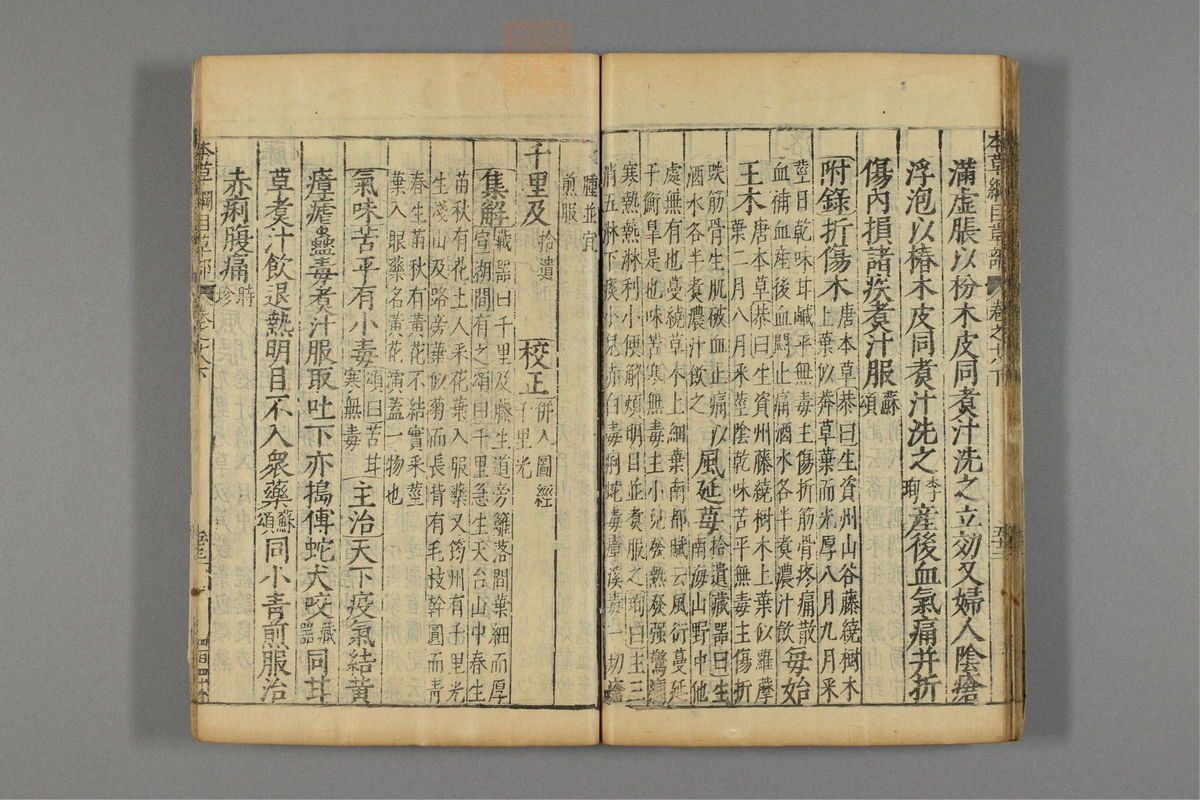 本草綱目草部 卷之十八下
滿虛脹以枌木皮同煮汁洗之立効又婦人陰瘡
浮泡以椿木皮同煮汁洗之李珣產後血氣痛并折
傷內損諸疾煮汁服蘇頌
附錄折傷木唐本草恭曰生資州山谷藤繞樹木
上葉似莽草葉而光厚八月九月采
莖日乾味甘鹹平無毒主傷折筋骨疼痛散
血補血產後血悶止痛酒水各半煮濃汁飲每始
王木唐本草恭曰生資州藤繞樹木上葉似蘿摩
葉二月八月采莖陰乾味苦平無毒主傷折
跌筋骨生肌破血止痛以
酒水各半煮濃汁飲之風延莓拾遺藏器曰生
南海山野中他
處無有也蔓繞草木上細葉南都賦云風衍蔓延
于衡臯是也味苦寒無毒主小兒發熱發强驚癇
寒熱熱淋利小便解煩明目並煮服之珣曰主三
消五淋下痰小兒赤白毒痢蛇毒瘴溪毒一切瘡
腫並宜
煎服
千里及拾遺 校正併入圖經
千里光
集解藏器曰千里及藤生道旁籬落間葉細而厚
宣湖間有之頌曰千里急生天台山中春生
苗秋有花土人采花葉入服藥又筠州有千里光
生淺山及路旁葉似菊而長背有毛枝幹圓而青
春生苗秋有黃花不結實采莖
葉入眼藥名黃花演蓋一物也
氣味苦平有小毒頌曰苦甘
寒無毒主治天下疫氣結黃
瘴瘧蠱毒煮汁服取吐下亦搗傅蛇犬咬藏器同甘
草煮汁飲退熱明目不入衆藥蘇頌同小青煎服治
赤痢腹痛時珍
本草綱目草部 卷之十八下